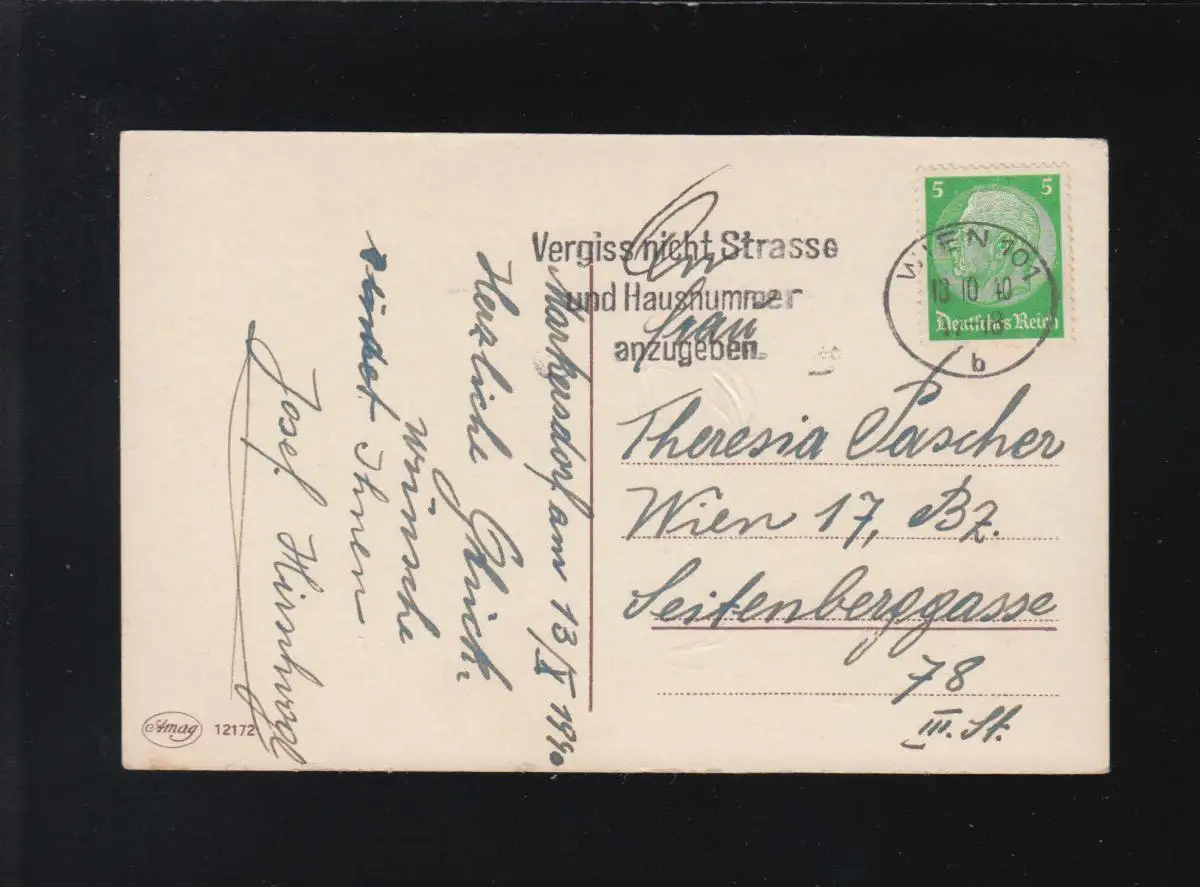 Markersdorf am 13/X 1940
Herzliche Glück
wünsche
sendet Ihnen
Josef
Amag 12172
Vergiss nicht Strasse
und Hausnummer
anzugeben
5 5
Deutsches Reich
WIEN 101
13 10 40
b
An
Frau
Theresia Pascher
Wien 17, Bz.
Seitenberggasse
78
III. St.